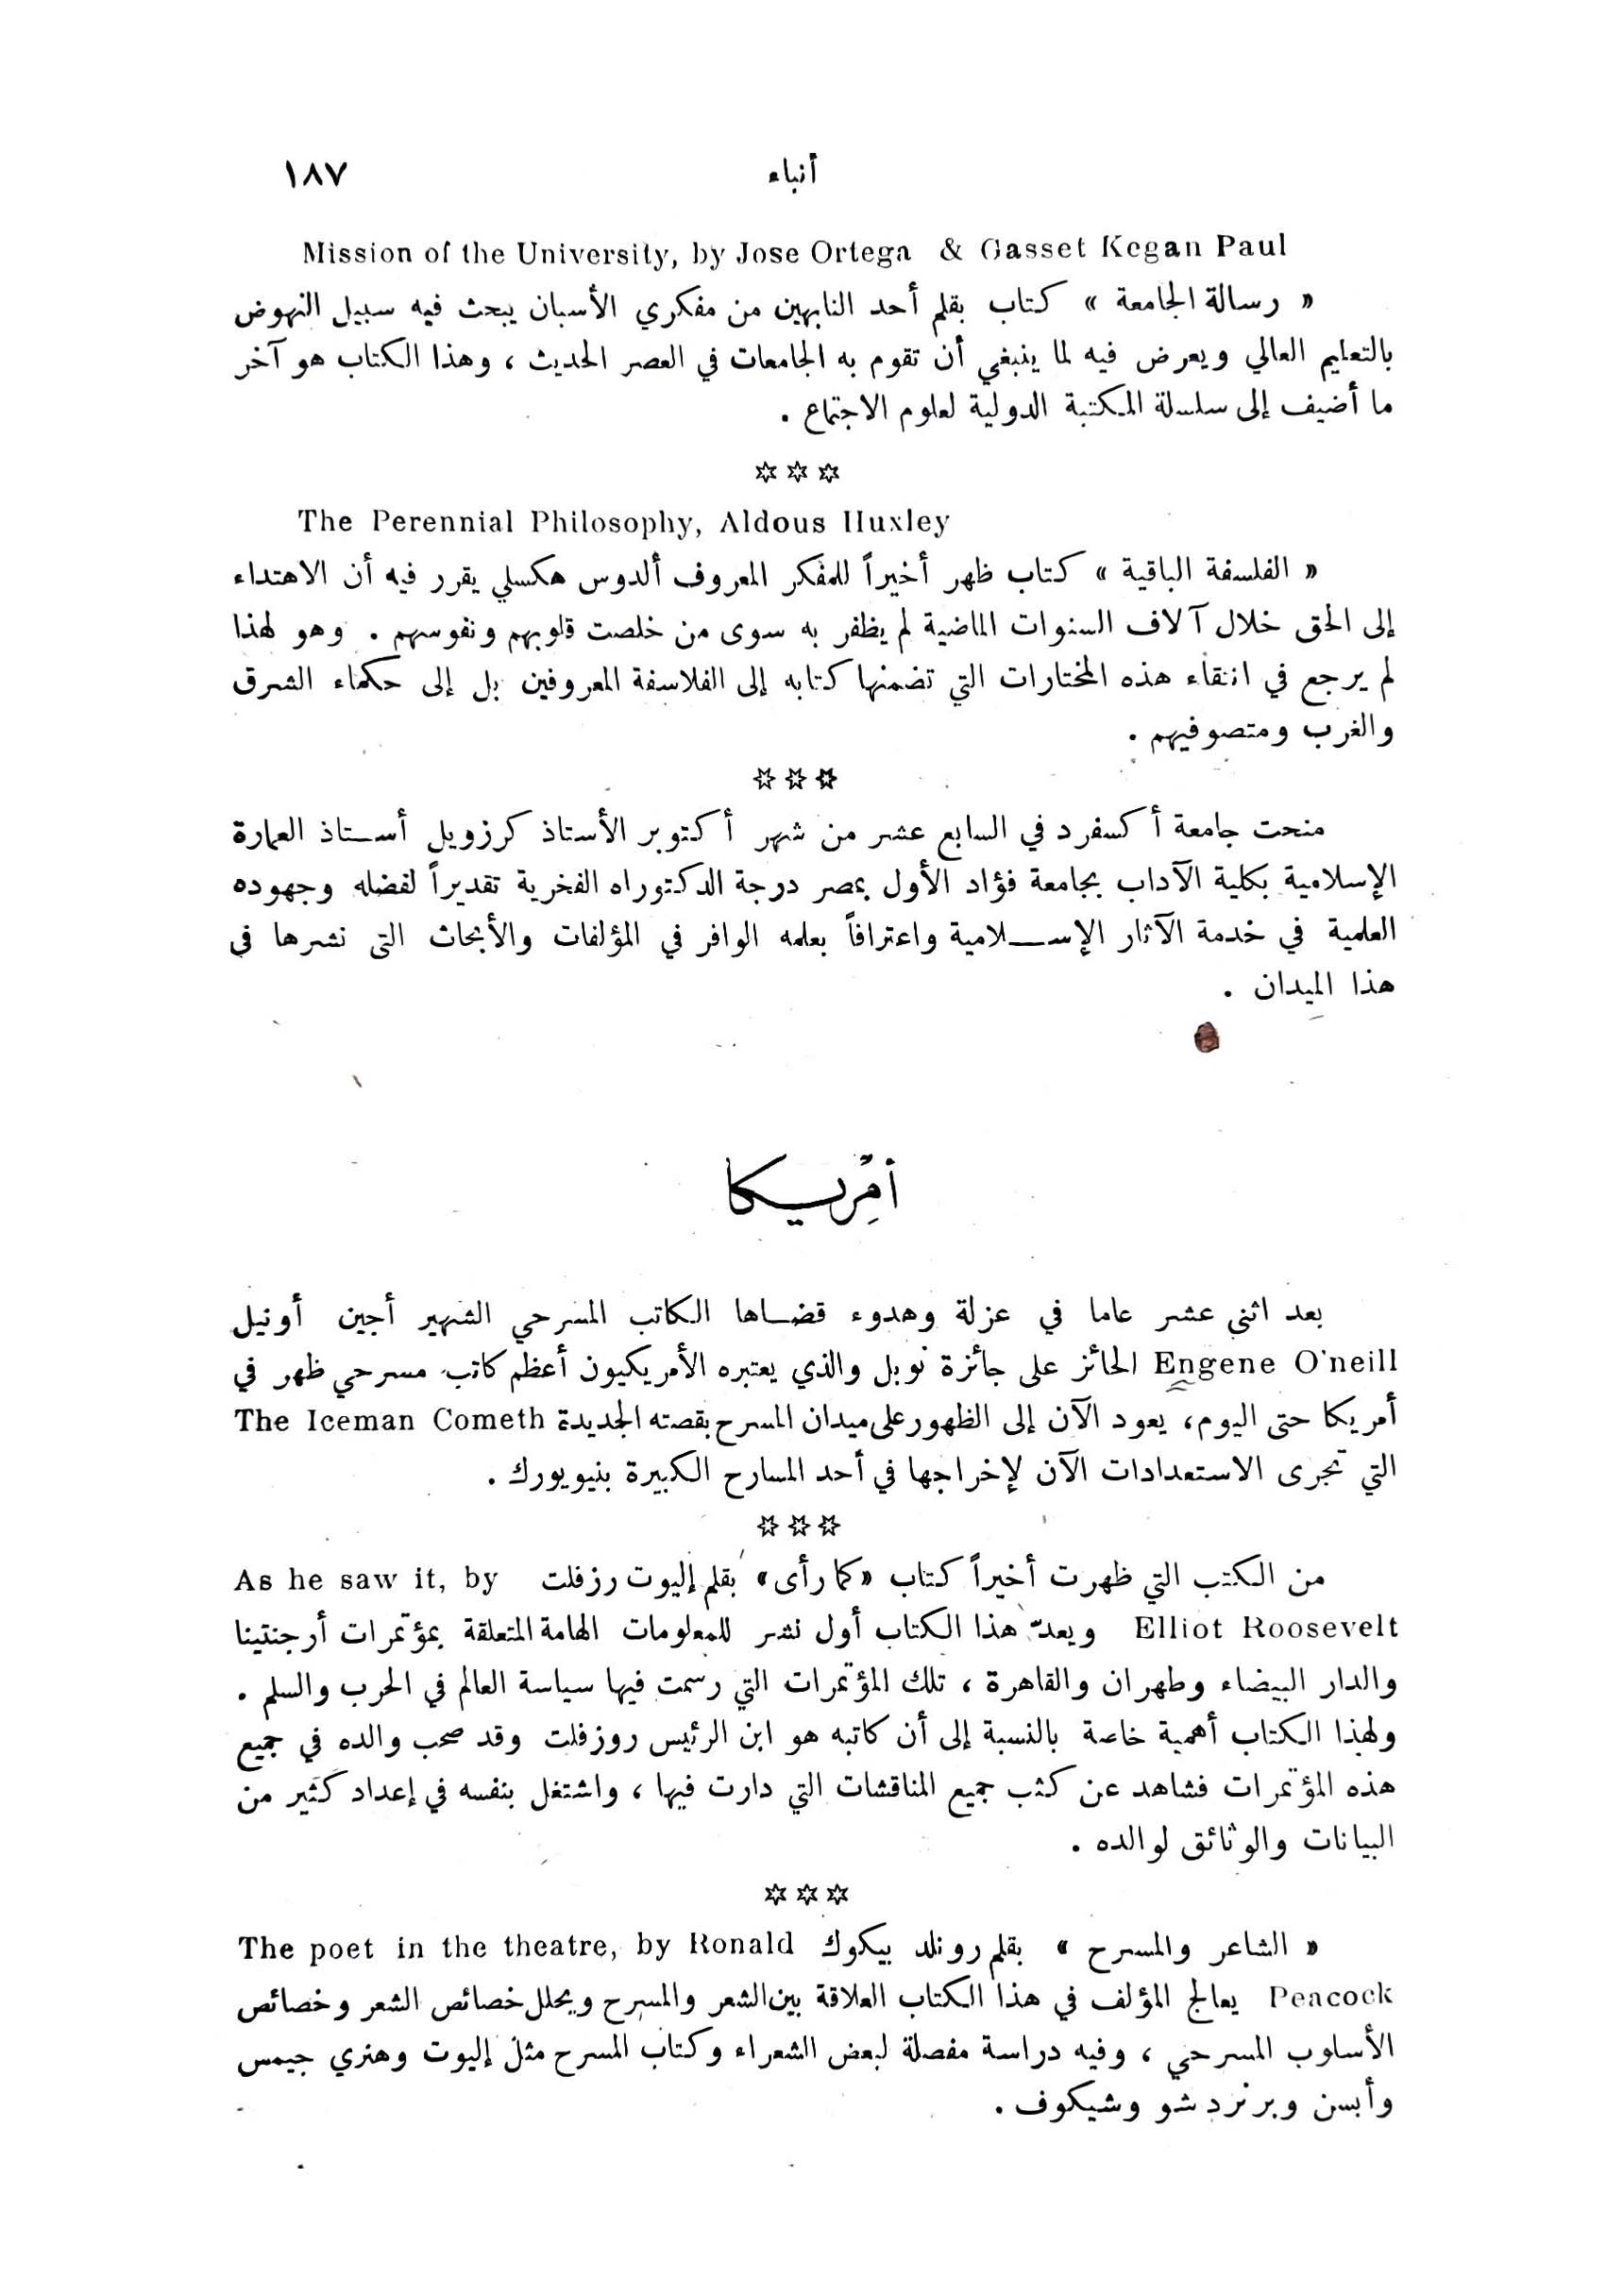 أنباء ١٨٧
Mission of the University, by Jose Ortega & Gasset Kegan Paul
« رسالة الجامعة » كتاب بقلم أحد النابهين من مفكري الأسبان يبحث فيه سبيل النهوض
بالتعليم العالي ويعرض فيه لما ينبغي أن تقوم به الجامعات في العصر الحديث ، وهذا الكتاب هو آخر
ما أضيف إلى سلسلة المكتبة الدولية لعلوم الاجتماع .
☆ ☆ ☆
The Perennial Philosophy, Aldous Huxley
« الفلسفة الباقية » كتاب ظهر أخيراً للمفكر المعروف ألدوس هكسلي يقرر فيه أن الاهتداء
إلى الحق خلال آلاف السنوات الماضية لم يظفر به سوى من خلصت قلوبهم ونفوسهم . وهو لهذا
لم يرجع في انتقاء هذه المختارات التي تضمنها كتابه إلى الفلاسفة المعروفين بل إلى حكماء الشرق
والغرب ومتصوفيهم .
☆ ☆ ☆
منحت جامعة أكسفرد في السابع عشر من شهر أكتوبر الأستاذ كرزويل أستاذ العمارة
الإسلامية بكلية الآداب بجامعة فؤاد الأول بمصر درجة الدكتوراه الفخرية تقديراً لفضله وجهوده
العلمية في خدمة الآثار الإسلامية واعترافاً بعلمه الوافر في المؤلفات والأبحاث التى نشرها فى
هذا الميدان .
أمْرِيكا
بعد اثنى عشر عاما في عزلة وهدوء قضاها الكاتب المسرحي الشهير أجين أونيل
Engene O'neill الحائز على جائزة نوبل والذي يعتبره الأمريكيون أعظم كاتب مسرحي ظهر في
أمريكا حتى اليوم، يعود الآن إلى الظهور على ميدان المسرح بقصته الجديدة The Iceman Cometh
التي تجرى الاستعدادات الآن لإخراجها في أحد المسارح الكبيرة بنيويورك .
☆ ☆ ☆
من الكتب التي ظهرت أخيراً كتاب «كما رأى» بقلم إليوت رزفلت As he saw it, by
Elliot Roosevelt ويعدّ هذا الكتاب أول نشر للمعلومات الهامة المتعلقة بمؤتمرات أرجنتينا
والدار البيضاء وطهران والقاهرة ، تلك المؤتمرات التي رسمت فيها سياسة العالم في الحرب والسلم .
ولهذا الكتاب أهمية خاصة بالنسبة إلى أن كاتبه هو ابن الرئيس روزفلت وقد صحب والده في جميع
هذه المؤتمرات فشاهد عن كثب جميع المناقشات التي دارت فيها ، واشتغل بنفسه في إعداد كثير من
البيانات والوثائق لوالده .
☆ ☆ ☆
« الشاعر والمسرح » بقلم رونلد بيكوك The poet in the theatre, by Ronald
Peacock يعالج المؤلف في هذا الكتاب العلاقة بين الشعر والمسرح ويحلل خصائص الشعر وخصائص
الأسلوب المسرحي ، وفيه دراسة مفصلة لبعض الشعراء وكتاب المسرح مثل إليوت وهنري جيمس
وأبسن وبرنردشو وشيكوف .